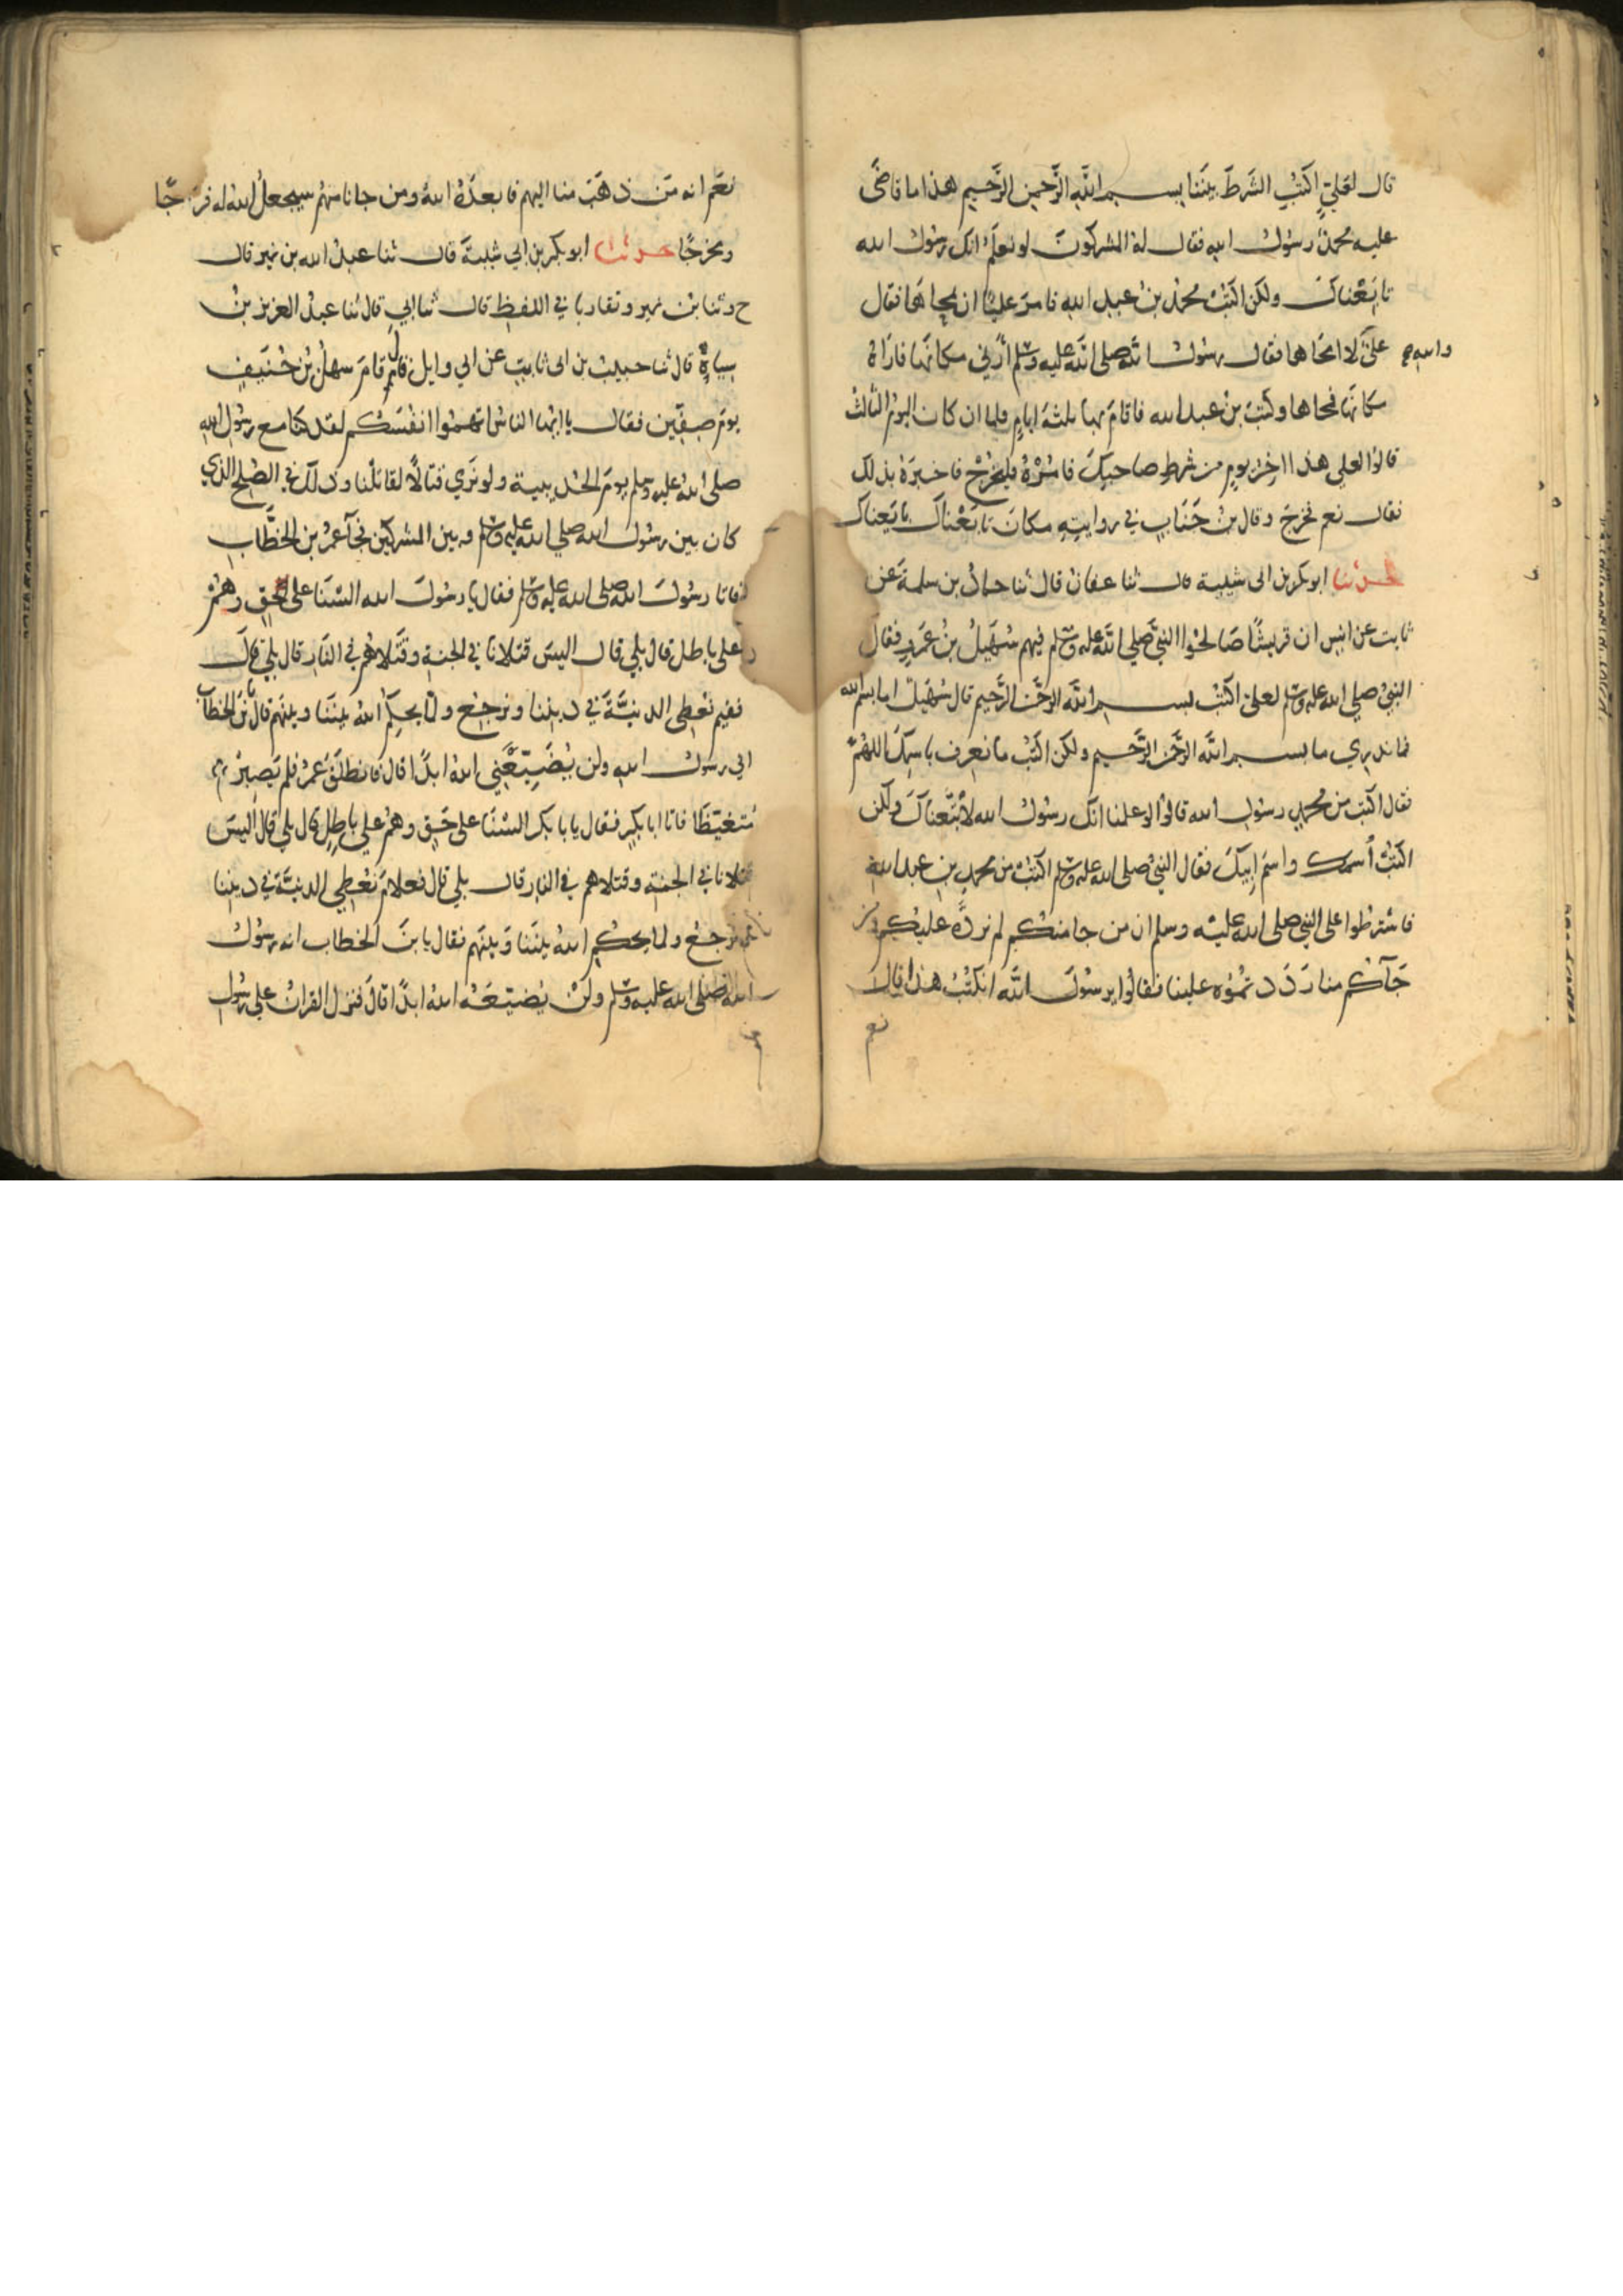 قال لعلي اكتب الشرط بيننا بسم الله الرحمن الرحيم هذا ما قاضى
عليه محمد رسول الله فقال له المشركون لو نعلم انك رسول الله
تابعناك ولكن اكتب محمد بن عبد الله فامر عليا ان يمحاها فقال
علي لا والله لا امحاها فقال رسول الله صلى الله عليه وسلم ارني مكانها فاراه
مكانها فمحاها وكتب بن عبد الله فاقام بها ثلثة ايام فلما ان كان اليوم الثالث
قالوا لعلي هذا اخر يوم من شرط صاحبك فامره فليخرج فاخبره بذلك
فقال نعم فخرج وقال بن جناب في روايته مكان تابعناك بايعناك
حدثنا ابو بكر بن ابي شيبة قال ثنا عفان قال ثنا حماد بن سلمة عن
ثابت عن انس ان قريشا صالحوا النبي صلى الله عليه وسلم فيهم سهيل بن عمرو فقال
النبي صلى الله عليه وسلم لعلي اكتب بسم الله الرحمن الرحيم قال سهيل اما بسم الله
فما ندري ما بسم الله الرحمن الرحيم ولكن اكتب ما نعرف باسمك اللهم
فقال اكتب من محمد رسول الله قالوا لو علمنا انك رسول الله لاتبعناك ولكن
اكتب اسمك واسم ابيك فقال النبي صلى الله عليه وسلم اكتب من محمد بن عبد الله
فاشترطوا على النبي صلى الله عليه وسلم ان من جا منكم لم نرده عليكم ومن
جآكم منا رددتموه علينا فقالوا يرسول الله انكتب هذا قال
نعم
نعم انه من ذهب منا اليهم فابعده الله ومن جانا منهم سيجعل الله له فرجا
ومخرجا حدثنا ابو بكر بن ابي شيبة قال ثنا عبد الله بن نمير قال
ح وثنا بن نمير وتقاربا في اللفظ قال ثنا ابي قال ثنا عبد العزيز بن
سياه قال ثنا حبيب بن ابي ثابت عن ابي وايل قال قام سهل بن حنيف
يوم صفين فقال يا ايها الناس اتهموا انفسكم لقد كنا مع رسول الله
صلى الله عليه وسلم يوم الحديبية ولو نري قتالا لقاتلنا وذلك في الصلح الذي
كان بين رسول الله صلى الله عليه وسلم وبين المشركين فجآ عمر بن الخطاب
فاتا رسول الله صلى الله عليه وسلم فقال يا رسول الله السنا على الحق وهم
على باطل قال بلي قال اليس قتلانا في الجنة وقتلاهم في النار قال بلي قال
ففيم نعطي الدنية في ديننا ونرجع ولما يحكم الله بيننا وبينهم قال يا بن الخطاب
اني رسول الله ولن يضيعني الله ابدا قال فانطلق عمر فلم يصبر
متغيظا فاتا ابا بكر فقال يا با بكر السنا على حق وهم علي باطل قال بلي قال اليس
قتلانا في الجنة وقتلاهم في النار قال بلي قال فعلام نعطي الدنية في ديننا
ونرجع ولما يحكم الله بيننا وبينهم فقال يا بن الخطاب انه رسول
الله صلى الله عليه وسلم ولن يضيعه الله ابدا قال فنزل القران علي رسول